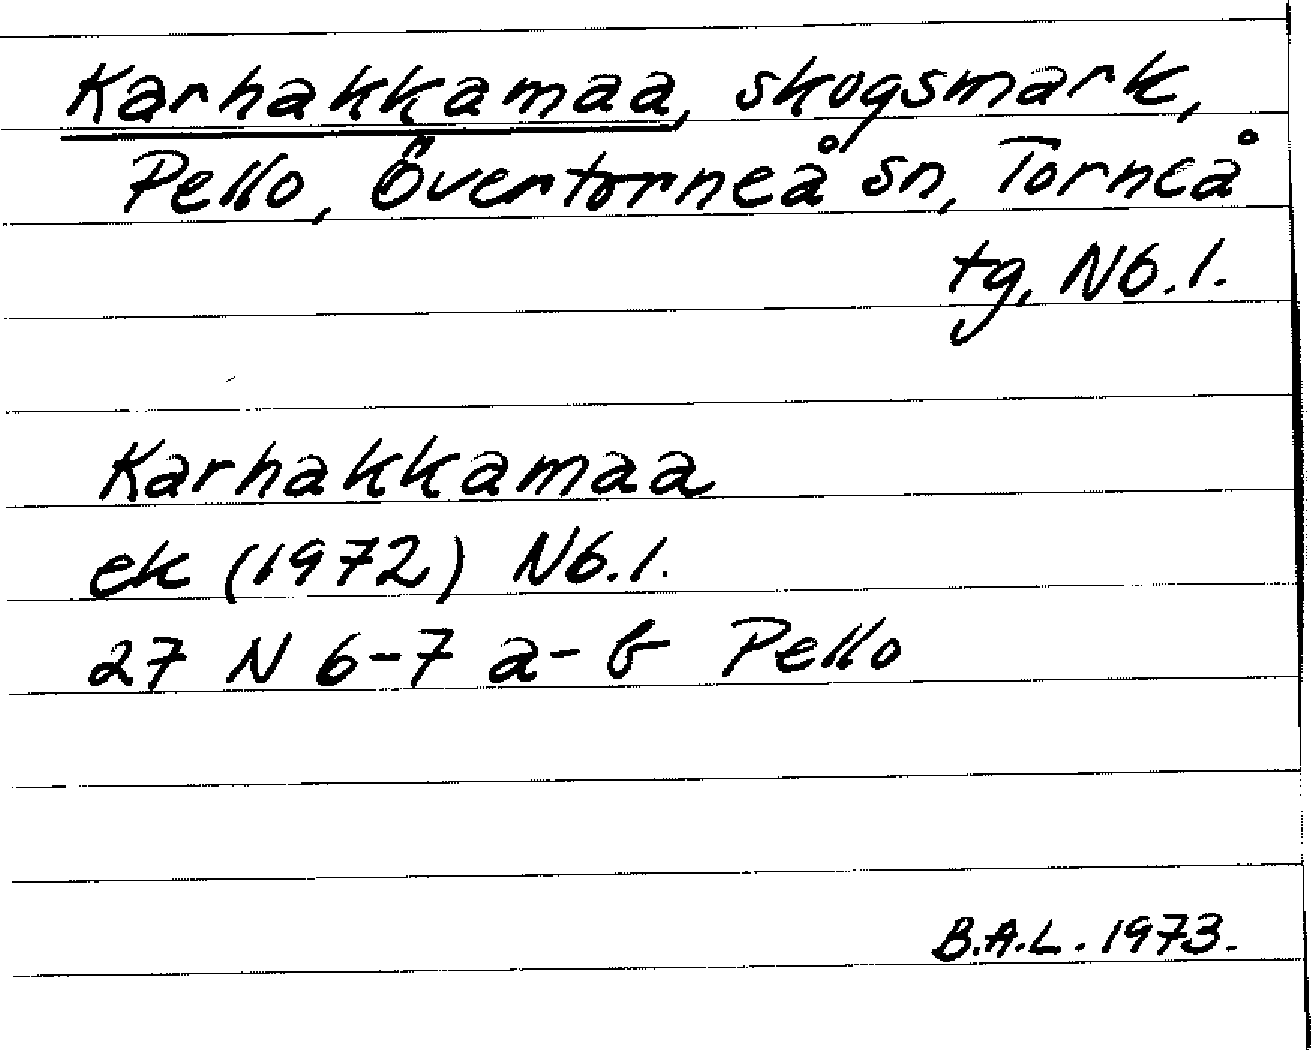 Karhakkamaa, skogsmark,
Pello, Övertorneå sn, Torneå
tg, Nb.l.
Karhakkamaa
ek (1972) Nb.l.
27 N 6-7 a-b Pello
B.A.L. 1973.